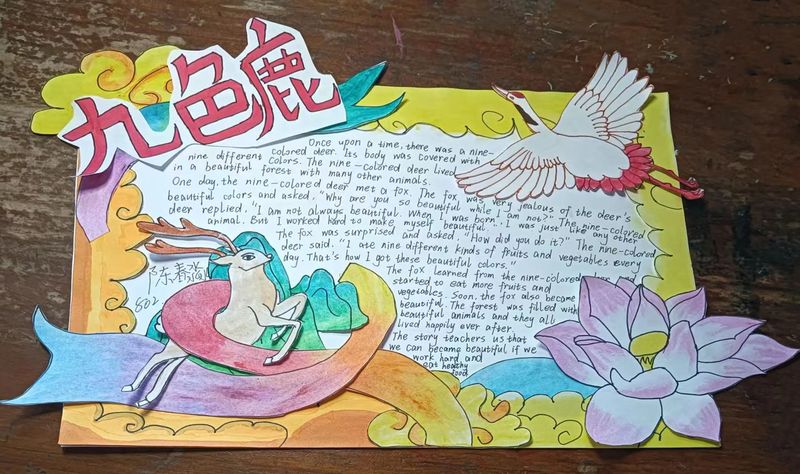 九色鹿
Once upon a time, there was a nine-
nine different colored deer. Its body was covered with
in a beautiful forest with many other animals.
colors. The nine-colored deer lived
One day, the nine-colored deer met a fox. The fox was very jealous of the deer's
beautiful colors and asked, "Why are you so beautiful while I am not?" The nine-colored
deer replied, "I am not always beautiful. When I was born, I was just like any other
animal. But I worked hard to make myself beautiful."
The fox was surprised and asked, "How did you do it?" The nine-colored
deer said, "I ate nine different kinds of fruits and vegetables every
day. That's how I got these beautiful colors."
The fox learned from the nine-colored
started to eat more fruits and
vegetables. Soon, the fox also became
beautiful. The forest was filled with
beautiful animals and they all
lived happily ever after.
The story teachers us that
we can became beautiful if we
work hard and
eat healthy
food
802